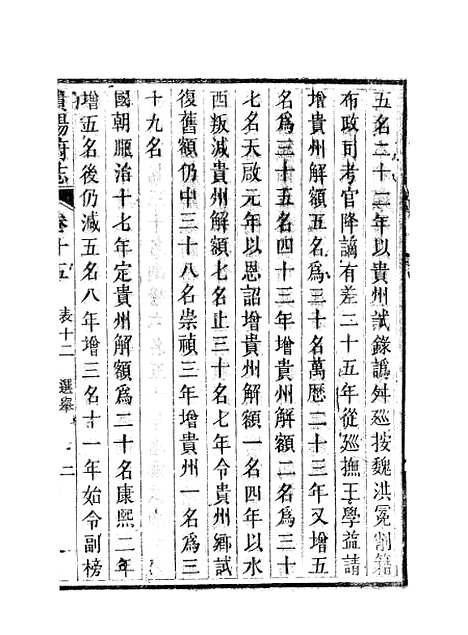 五名二十二年以貴州試錄譌舛廵按魏洪冕削籍
布政司考官降謫有差二十五年從廵撫王學益請
增貴州解額五名爲三十名萬歷二十三年又增五
名爲三十五名四十三年增貴州解額二名爲三十
七名天啟元年以恩詔增貴州解額一名四年以水
西叛減貴州解額七名止三十名七年令貴州鄉試
復舊額仍中三十八名崇禎三年增貴州一名爲三
十九名
國朝順治十七年定貴州解額爲二十名康熙二年
增五名後仍減五名八年增三名十一年始令副榜
貴陽府志 卷十五 表十二 選舉 二